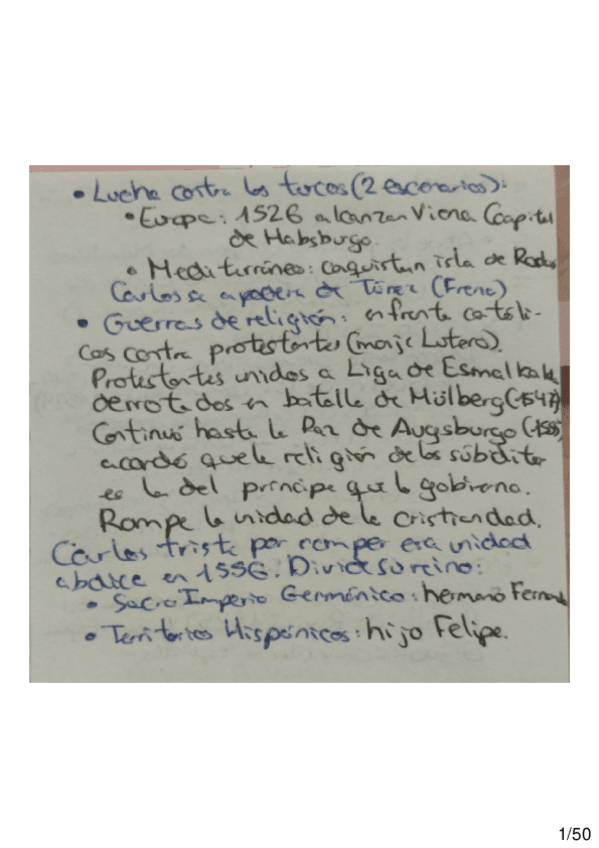 • Lucha contra los turcos (2 escenarios):
• Europa: 1526 alcanzan Viena (capital
de Habsburgo.
• Mediterráneo: conquistan isla de Rodas
Carlos se apodera de Túnez (Frena)
• Guerras de religión: enfrenta católi-
cos contra protestantes (monje Lutero).
Protestantes unidos a Liga de Esmalkalda
derrotados en batalla de Mülberg (1547)
Continuó hasta la Paz de Augsburgo (1555)
acordó que la religión de los súbditos
es la del príncipe que lo gobierna.
Rompe la unidad de la cristiandad.
Carlos triste por romper esa unidad
abdica en 1556. Divide su reino:
• Sacro Imperio Germánico: hermano Fernando
• Territorios Hispánicos: hijo Felipe.
1/50